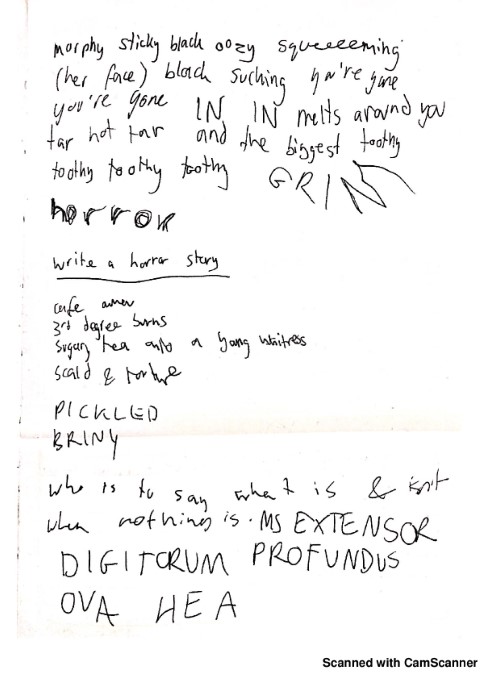 morphy sticky black oozy squeeeeming
(her face) black sucking you're gone
you're gone IN IN melts around you
tar hot tar and the biggest toothy
toothy toothy toothy GRIN
horror
write a horror story
cafe owner
3rd degree burns
sugary tea onto a young waitress
scald & torture
PICKLED
BRINY
who is to say what is & isn't
when nothing is. MS EXTENSOR
DIGITORUM PROFUNDUS
OVA HEA
Scanned with CamScanner